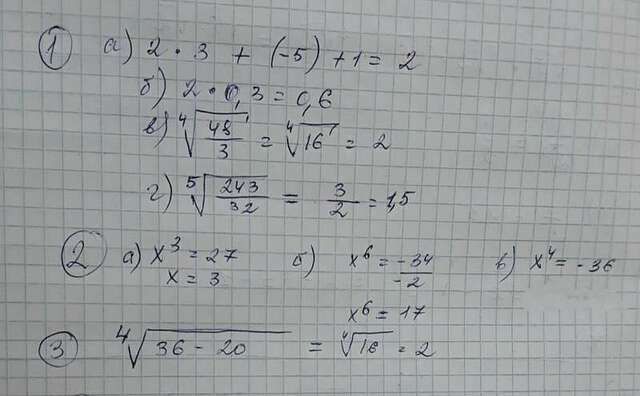 ① а) 2 · 3 + (-5) + 1 = 2
б) 2 · 0,3 = 0,6
в) ⁴√(48/3) = ⁴√16 = 2
г) ⁵√(243/32) = 3/2 = 1,5
② а) x³ = 27 б) x⁶ = -34/-2 в) x⁴ = -36
x = 3 x⁶ = 17
③ ⁴√(36 - 20) = ⁴√16 = 2